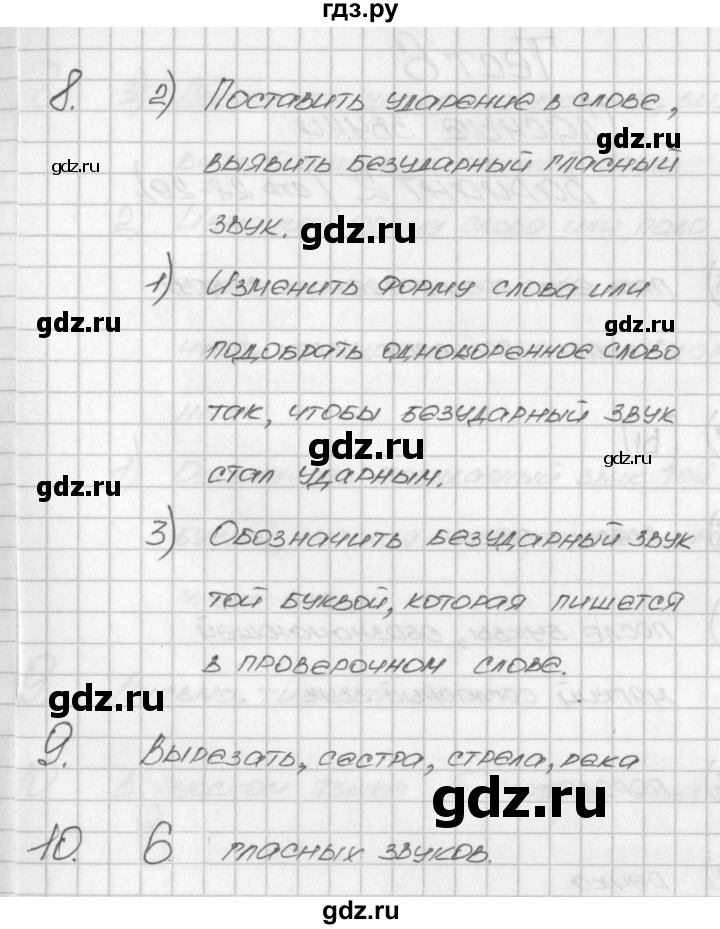 гдз.ру
8. 2) Поставить ударение в слове,
gdz.ru
gdz.ru
выявить безударный гласный
звук.
gdz.ru
1) Изменить форму слова или
gdz.ru
gdz.ru
подобрать однокоренное слово
так, чтобы безударный звук
gdz.ru
gdz.ru
стал ударным.
gdz.ru
3) Обозначить безударный звук
той буквой, которая пишется
в проверочном слове.
gdz.ru
9. Вырезать, сестра, стрела, река
gdz.ru
10. 6 гласных звуков.
gdz.ru